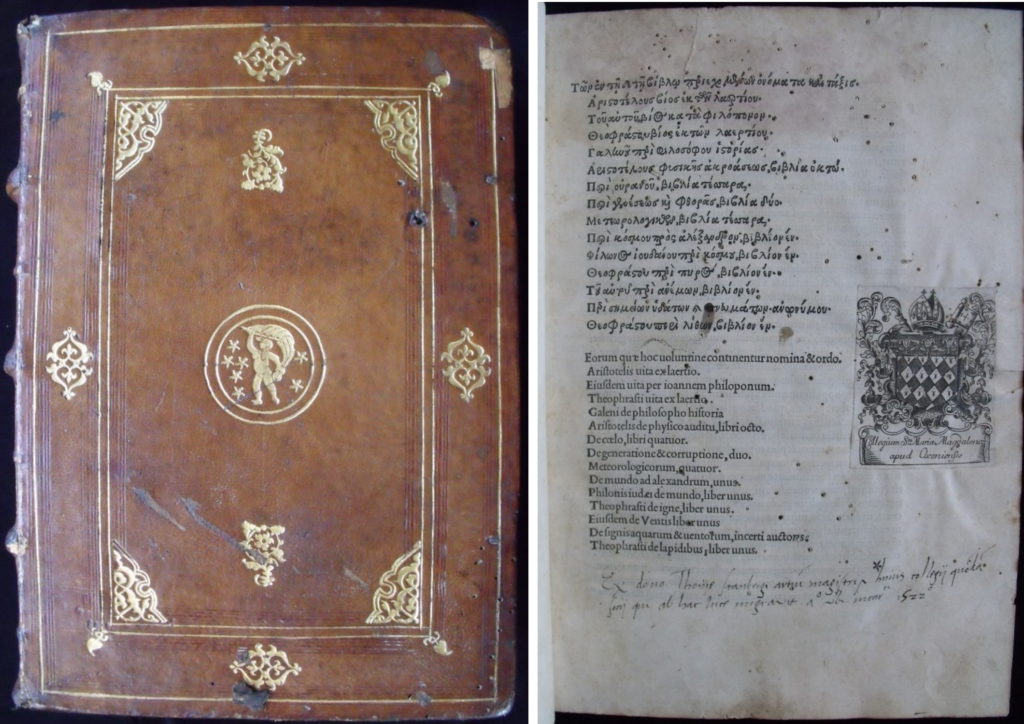 Τῶν ἐν τῇδε τῇ βίβλῳ περιεχομένων ὀνόματα καὶ τάξις.
Ἀριστοτέλους βίος ἐκ τῶν λαερτίου.
Τοῦ αὐτοῦ βίος κατὰ φιλόπονον.
Θεοφράστου βίος ἐκ τῶν λαερτίου.
Γαληνοῦ περὶ φιλοσόφου ἱστορίας.
Ἀριστοτέλους φυσικῆς ἀκροάσεως, βιβλία ὀκτώ.
Περὶ οὐρανοῦ, βιβλία τέσσαρα.
Περὶ γενέσεως καὶ φθορᾶς, βιβλία δύο.
Μετεωρολογικῶν, βιβλία τέσσαρα.
Περὶ κόσμου πρὸς ἀλέξανδρον, βιβλίον ἕν.
Φίλωνος ἰουδαίου περὶ κόσμου, βιβλίον ἕν.
Θεοφράστου περὶ πυρὸς, βιβλίον ἕν.
Τοῦ αὐτοῦ περὶ ἀνέμων, βιβλίον ἕν.
Περὶ σημείων ὑδάτων καὶ πνευμάτων ἀνωνύμου.
Θεοφράστου περὶ λίθων, βιβλίον ἕν.
Eorum quæ hoc uolumine continentur nomina & ordo.
Aristotelis uita ex laertio.
Eiusdem uita per ioannem philoponum.
Theophrasti uita ex laertio.
Galeni de philosopho historia
Aristotelis de physico auditu, libri octo.
De cœlo, libri quatuor.
De generatione & corruptione, duo.
Meteorologicorum, quatuor.
De mundo ad alexandrum, unus.
Philonis iudæi de mundo, liber unus.
Theophrasti de igne, liber unus.
Eiusdem de Ventis liber unus
De signis aquarum & uentorum, incerti auctoris.
Theophrasti de lapidibus, liber unus.
Collegium Stæ Mariæ Magdalenæ
apud Oxonienses
Ex dono Thome artium magistri huius collegij
qui ab hac luce migravit 1522